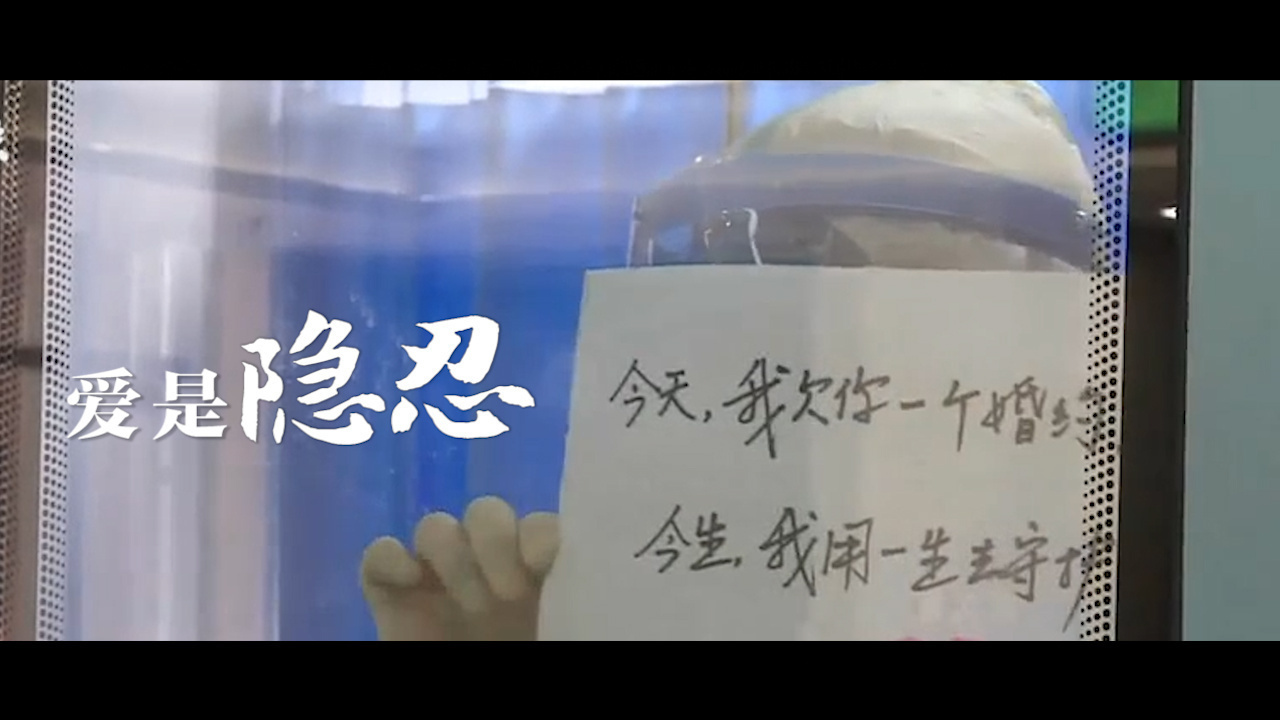 爱是隐忍
今天,我欠你一个婚
今生,我用一生去守护